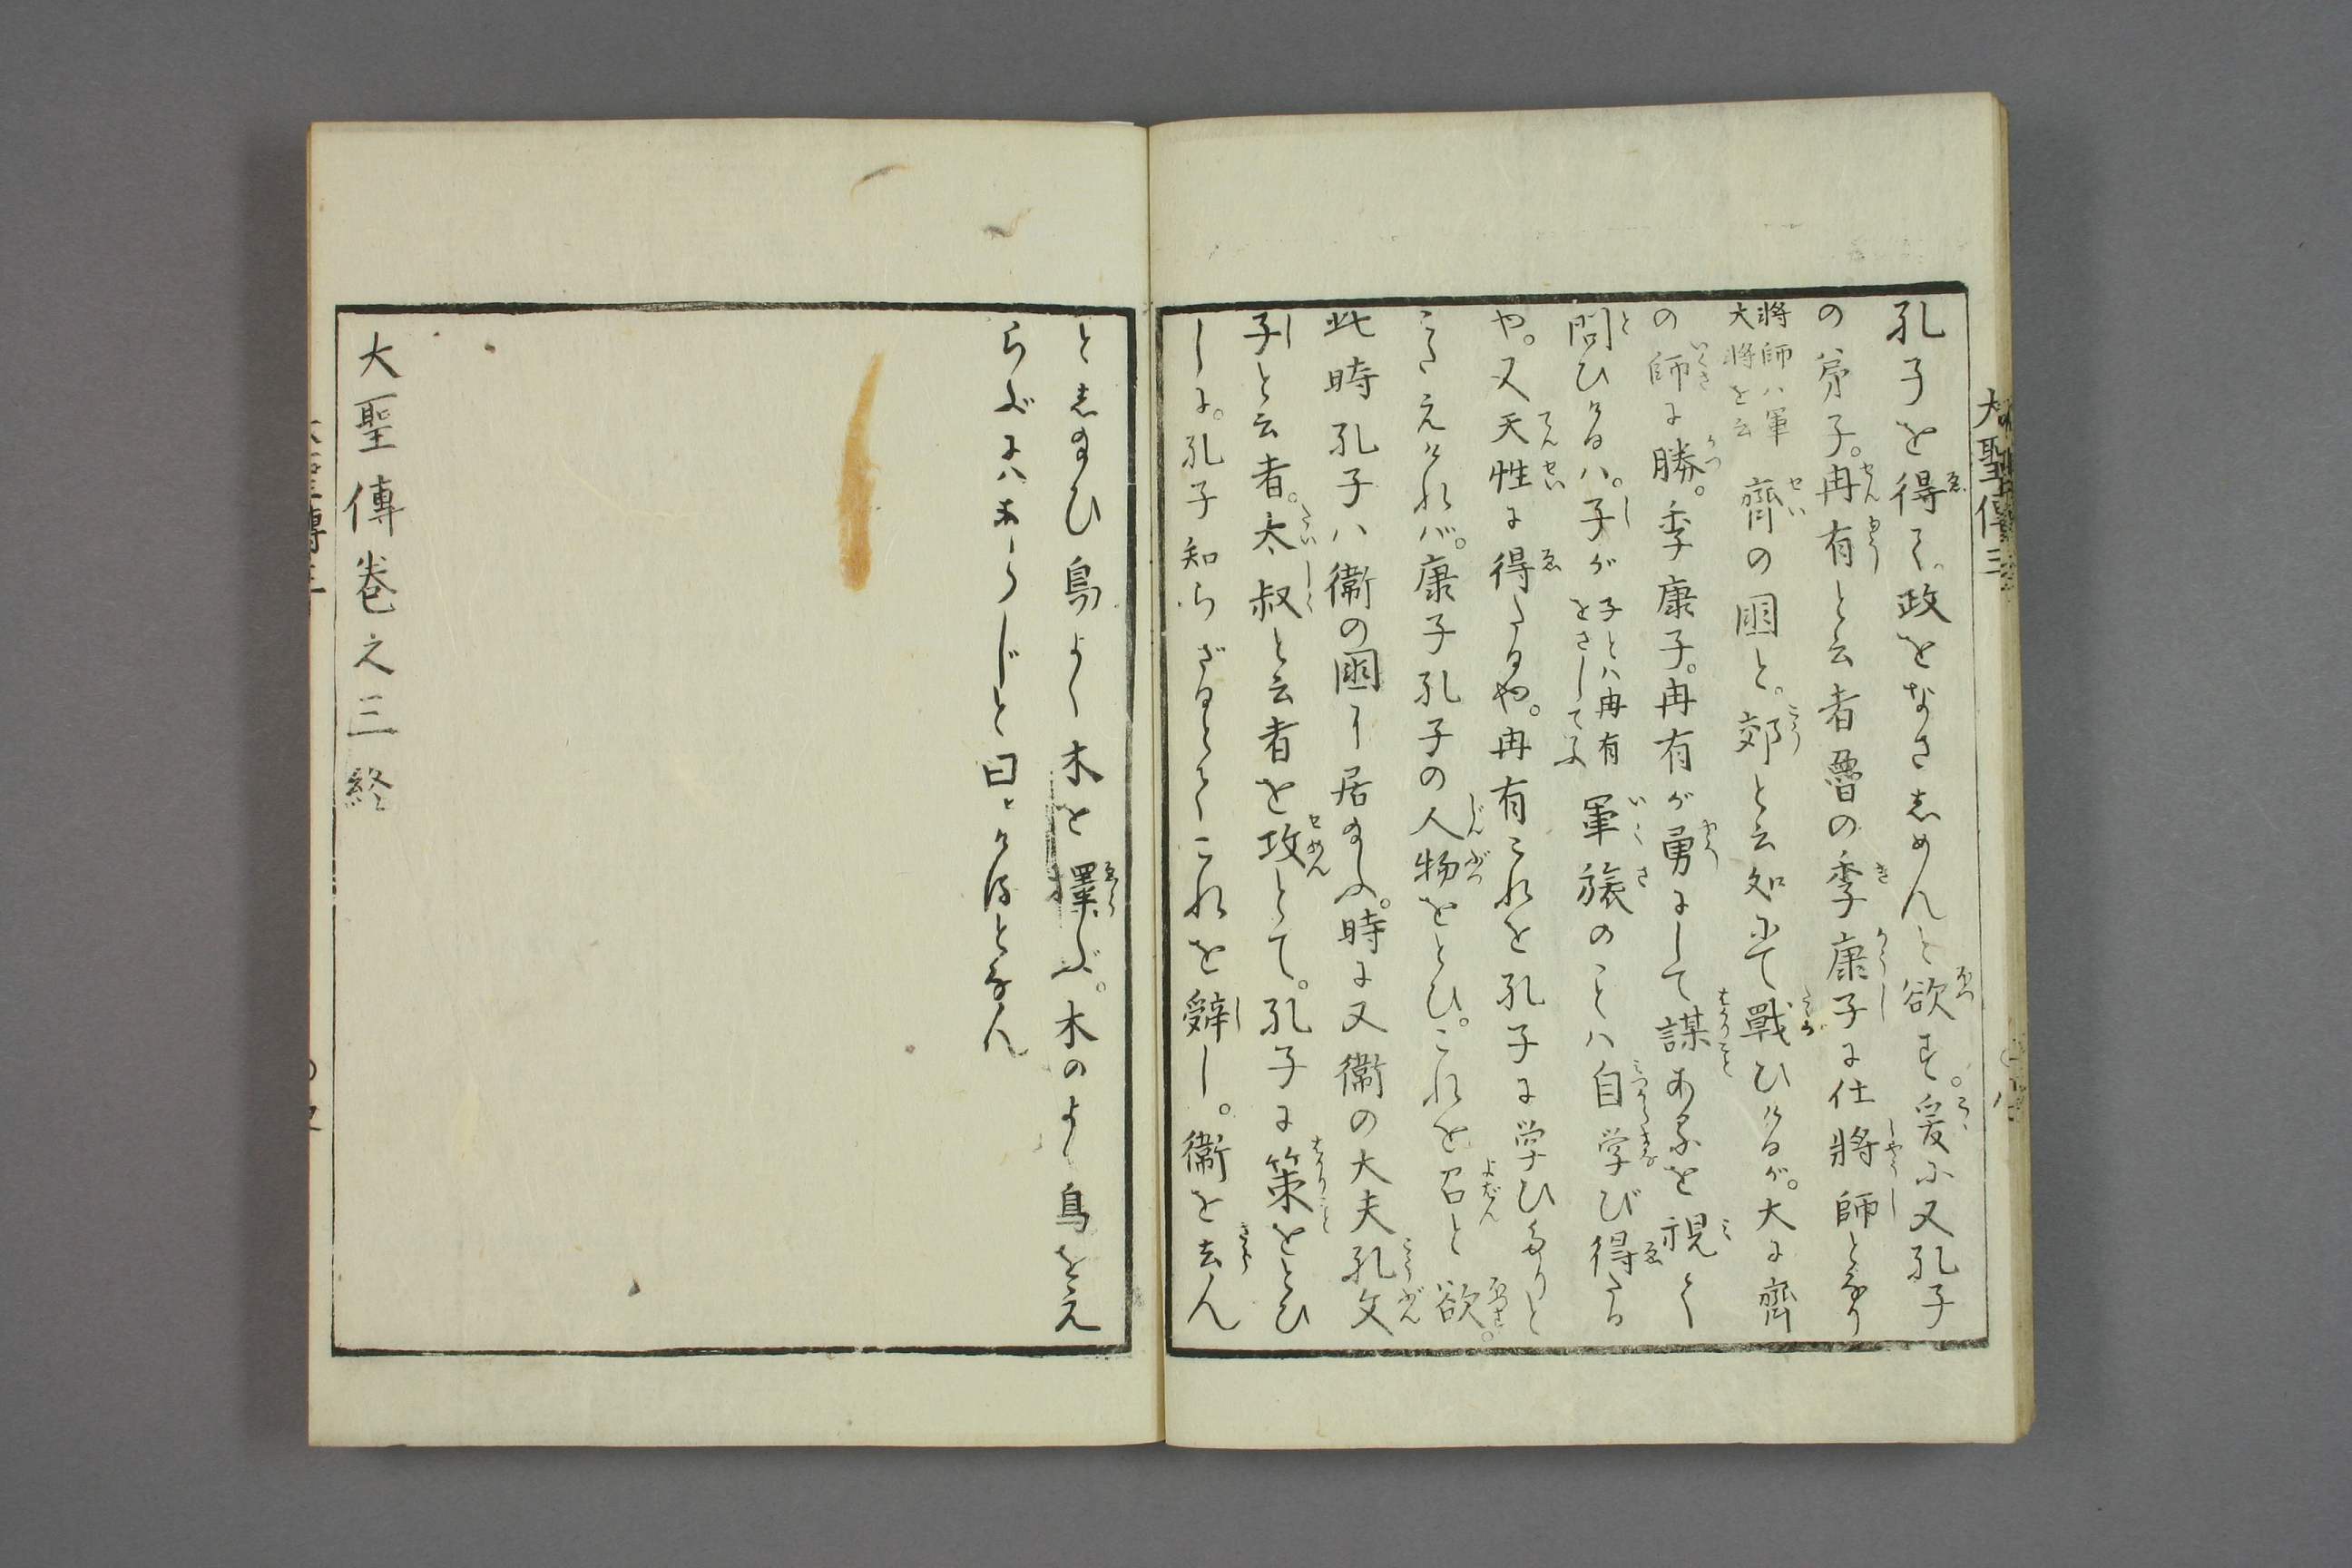 大聖傳三
孔子を得て。政をなさしめんと欲す。爰に又孔子
の弟子。冉有と云者魯の季康子に仕將師となり
將師ハ軍
大將を云
齊の国と。郊と云処にて戰ひけるが。大に齊
の師に勝。季康子。冉有が勇にして謀あるを視て
問ひけるハ。子が
子とハ冉有
をさしてふ
軍旅のことハ自学び得たる
や。又天性に得たるや。冉有これを孔子に学ひたりと
こたえけれバ。康子孔子の人物をとひ。これを召と欲。
此時孔子ハ衞の国に居給ふ。時に又衞の大夫孔文
子と云者。太叔と云者を攻とて。孔子に策をとひ
しに。孔子知らざるとてこれを辭し。衞を去ん
としたまひ鳥よく木を擇ぶ。木のよく鳥をえ
らぶにハあらじと曰ヒけるとなん
大聖傳巻之三終